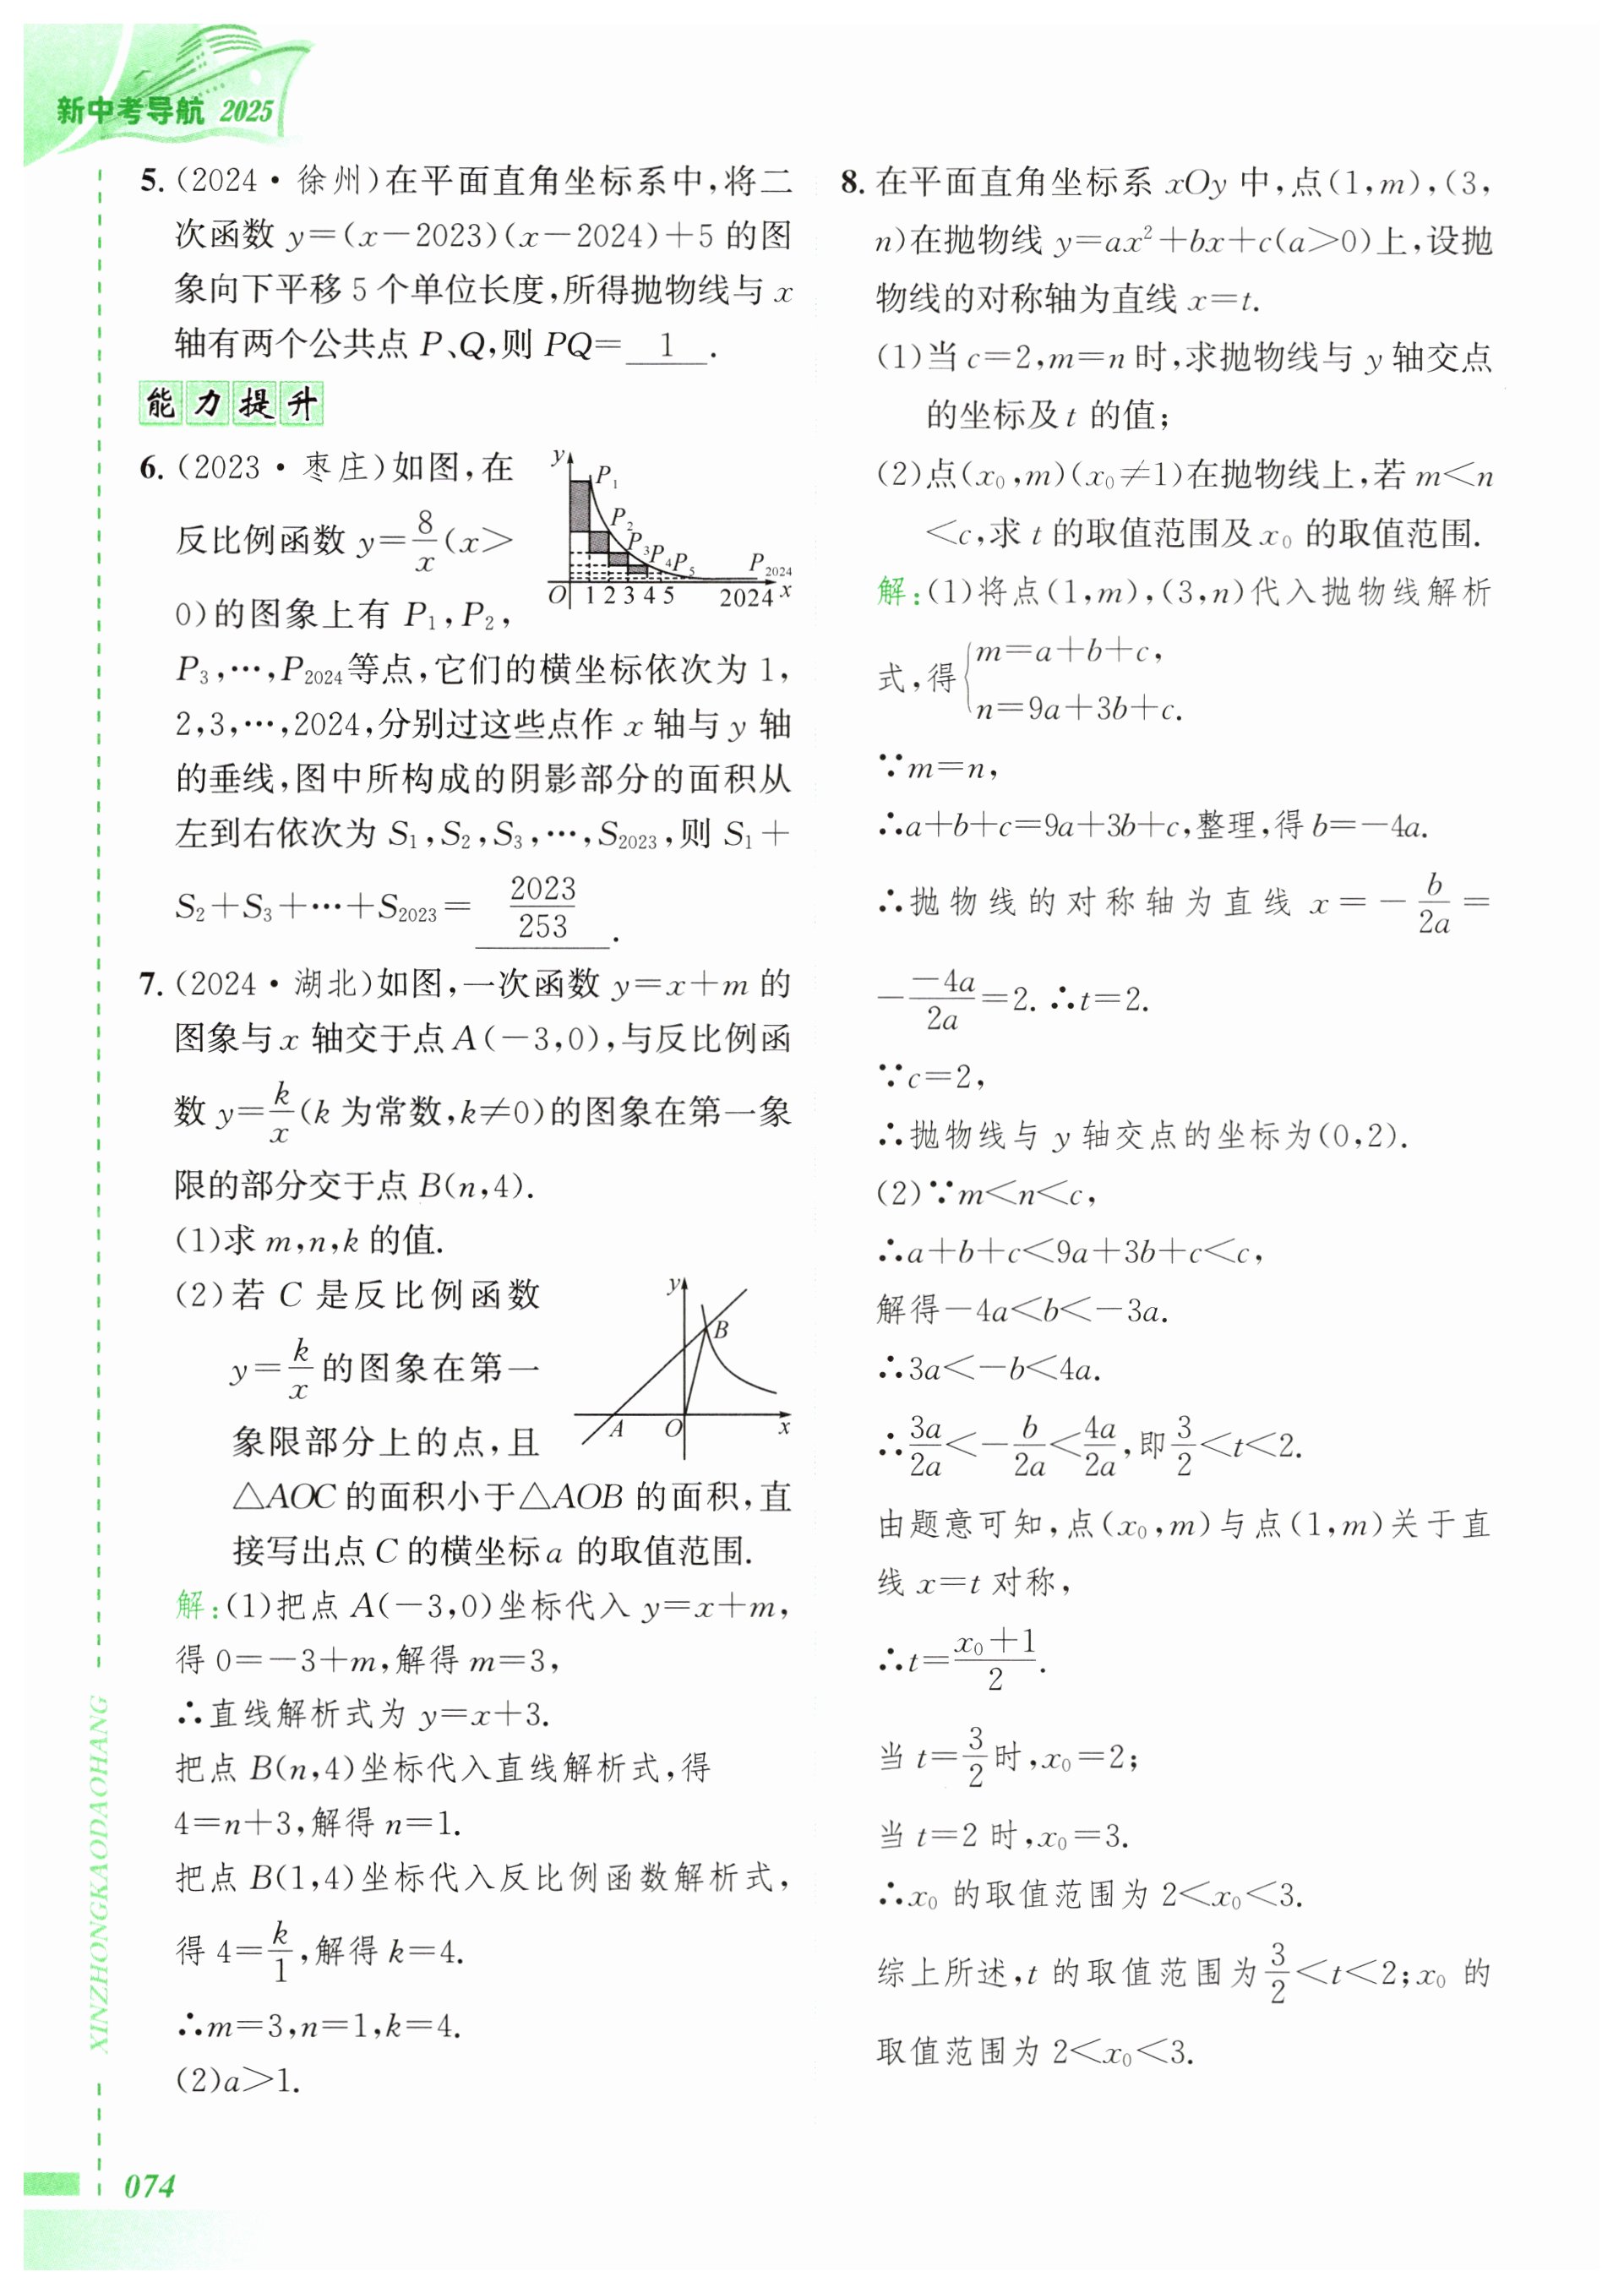 新中考导航 2025
5.(2024·徐州)在平面直角坐标系中,将二
次函数 y=(x-2023)(x-2024)+5 的图
象向下平移 5 个单位长度,所得抛物线与 x
轴有两个公共点 P、Q,则 PQ= 1 .
能力提升
6.(2023·枣庄)如图,在
反比例函数 y=8/x(x>
0)的图象上有 P₁,P₂,
P₃,…,P₂₀₂₄等点,它们的横坐标依次为 1,
2,3,…,2024,分别过这些点作 x 轴与 y 轴
的垂线,图中所构成的阴影部分的面积从
左到右依次为 S₁,S₂,S₃,…,S₂₀₂₃,则 S₁+
S₂+S₃+…+S₂₀₂₃= 2023/253 .
y P₁ P₂ P₃ P₄ P₅ P₂₀₂₄
O 1 2 3 4 5 2024 x
7.(2024·湖北)如图,一次函数 y=x+m 的
图象与 x 轴交于点 A(-3,0),与反比例函
数 y=k/x(k 为常数,k≠0)的图象在第一象
限的部分交于点 B(n,4).
(1)求 m,n,k 的值.
(2)若 C 是反比例函数
y=k/x 的图象在第一
象限部分上的点,且
△AOC 的面积小于△AOB 的面积,直
接写出点 C 的横坐标 a 的取值范围.
y B
A O x
解:(1)把点 A(-3,0)坐标代入 y=x+m,
得 0=-3+m,解得 m=3,
∴直线解析式为 y=x+3.
把点 B(n,4)坐标代入直线解析式,得
4=n+3,解得 n=1.
把点 B(1,4)坐标代入反比例函数解析式,
得 4=k/1,解得 k=4.
∴m=3,n=1,k=4.
(2)a>1.
8.在平面直角坐标系 xOy 中,点(1,m),(3,
n)在抛物线 y=ax²+bx+c(a>0)上,设抛
物线的对称轴为直线 x=t.
(1)当 c=2,m=n 时,求抛物线与 y 轴交点
的坐标及 t 的值;
(2)点(x₀,m)(x₀≠1)在抛物线上,若 m<n
<c,求 t 的取值范围及 x₀ 的取值范围.
解:(1)将点(1,m),(3,n)代入抛物线解析
式,得{m=a+b+c,
n=9a+3b+c.
∵m=n,
∴a+b+c=9a+3b+c,整理,得 b=-4a.
∴抛物线的对称轴为直线 x=-b/2a=
--4a/2a=2.∴t=2.
∵c=2,
∴抛物线与 y 轴交点的坐标为(0,2).
(2)∵m<n<c,
∴a+b+c<9a+3b+c<c,
解得-4a<b<-3a.
∴3a<-b<4a.
∴3a/2a<-b/2a<4a/2a,即3/2<t<2.
由题意可知,点(x₀,m)与点(1,m)关于直
线 x=t 对称,
∴t=x₀+1/2.
当 t=3/2时,x₀=2;
当 t=2 时,x₀=3.
∴x₀ 的取值范围为 2<x₀<3.
综上所述,t 的取值范围为3/2<t<2;x₀ 的
取值范围为 2<x₀<3.
XINZHONGKAODAOHANG
074